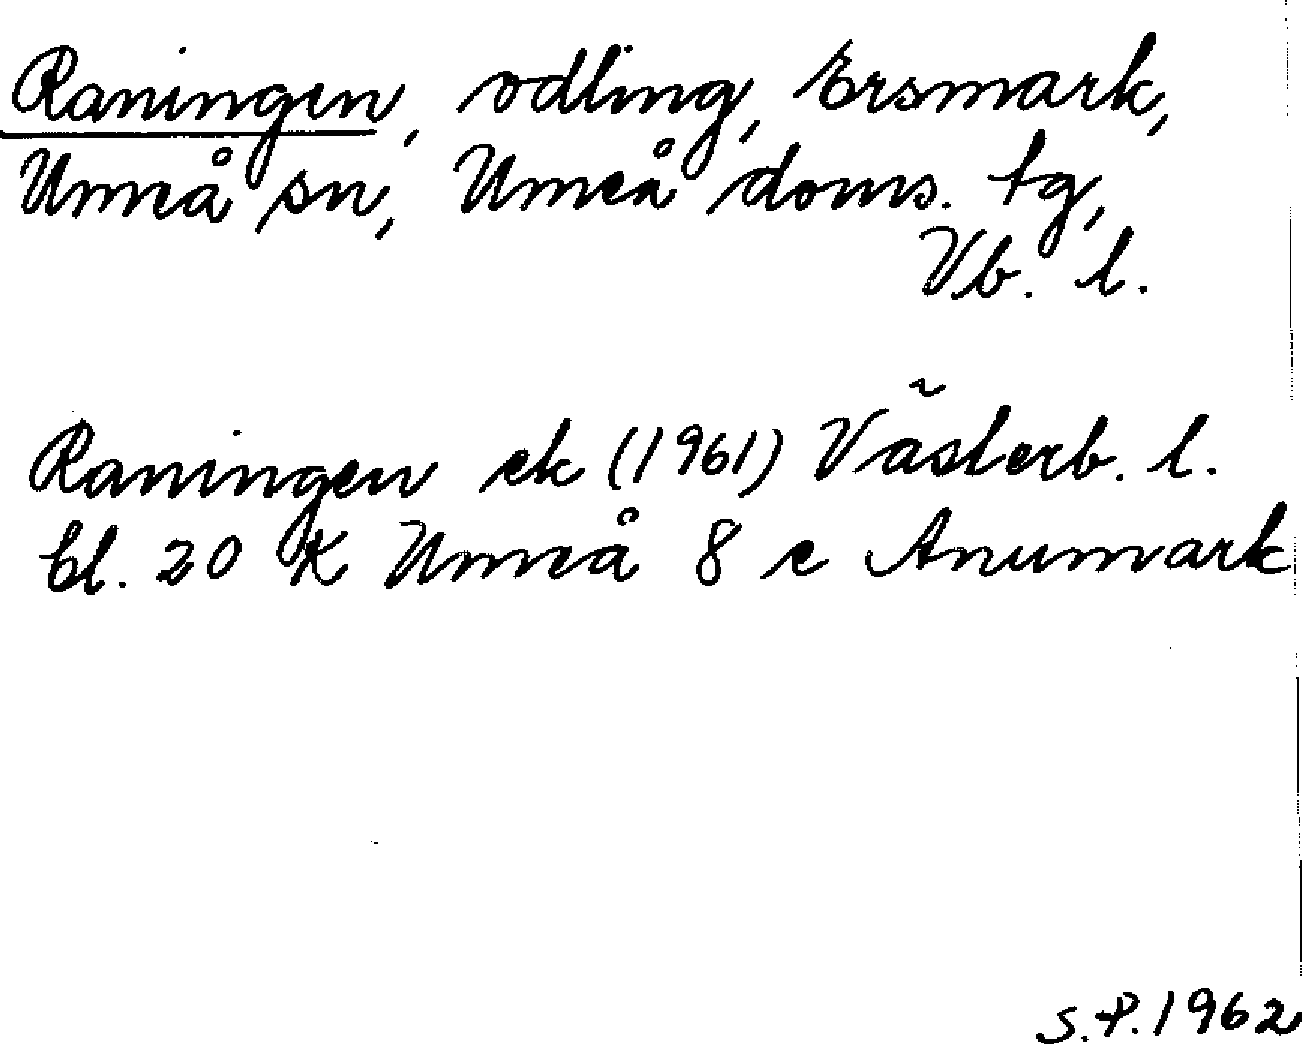 Raningen, odling, Ersmark,
Umeå sn, Umeå doms. tg,
Vb. l.
Raningen ek (1961) Västerb. l.
bl. 20 K Umeå 8 e Anumark
S.P. 1962